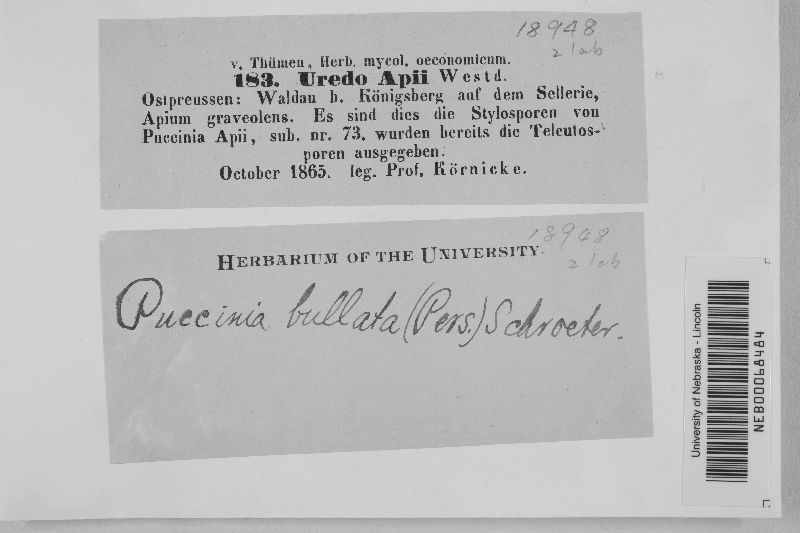 18948
2 lab
v. Thümen, Herb. mycol. oeconomicum.
183. Uredo Apii Westd.
Ostpreussen: Waldau b. Königsberg auf dem Sellerie,
Apium graveolens. Es sind dies die Stylosporen von
Puccinia Apii, sub. nr. 73. wurden bereits die Teleutos-
poren ausgegeben.
October 1865. leg. Prof. Körnicke.
18948
2 lab
HERBARIUM OF THE UNIVERSITY.
Puccinia bullata (Pers.) Schroeter.
University of Nebraska - Lincoln
NEB00068484